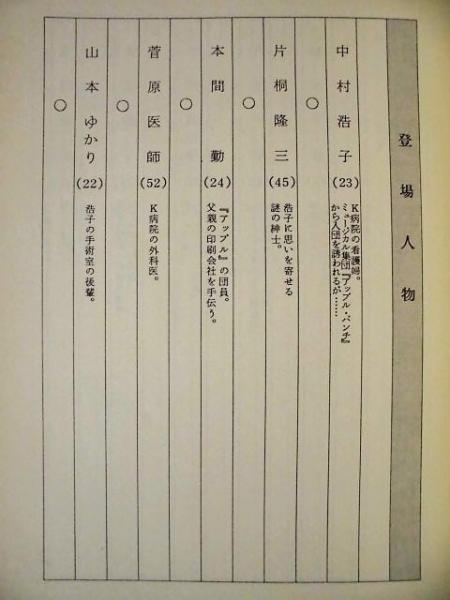 登場人物
中村浩子(23)
K病院の看護婦。
ミュージカル集団『アップル・パンチ』
から入団を誘われるが……
○
片桐隆三(45)
浩子に思いを寄せる
謎の紳士。
○
本間 勤(24)
『アップル』の団員。
父親の印刷会社を手伝う。
○
菅原医師(52)
K病院の外科医。
○
山本ゆかり(22)
浩子の手術室の後輩。
○